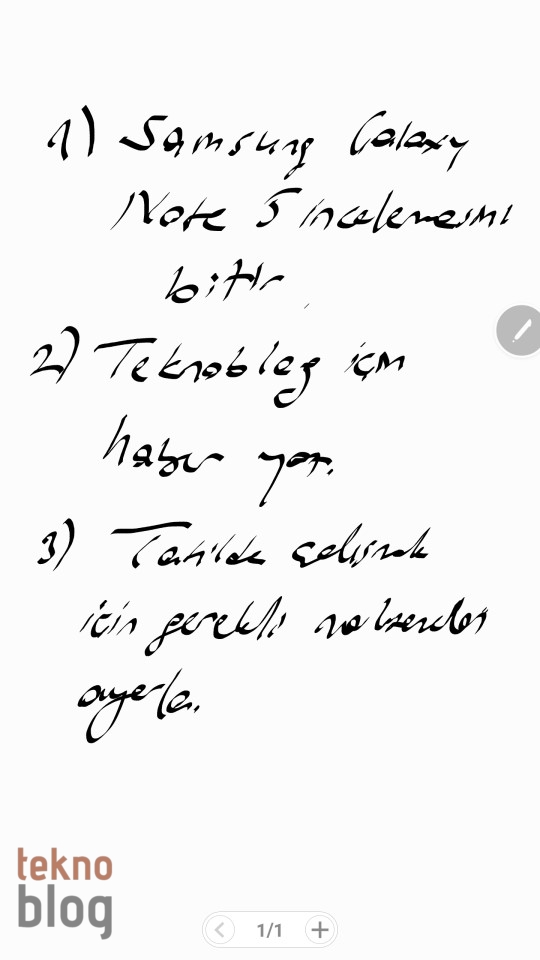 1) Samsung Galaxy
Note 5 incelemesini
bitir
2) Teknoblog için
haber yaz.
3) Tatilde çalışmak
için gerekli malzemeleri
ayarla.
tekno
blog
1/1